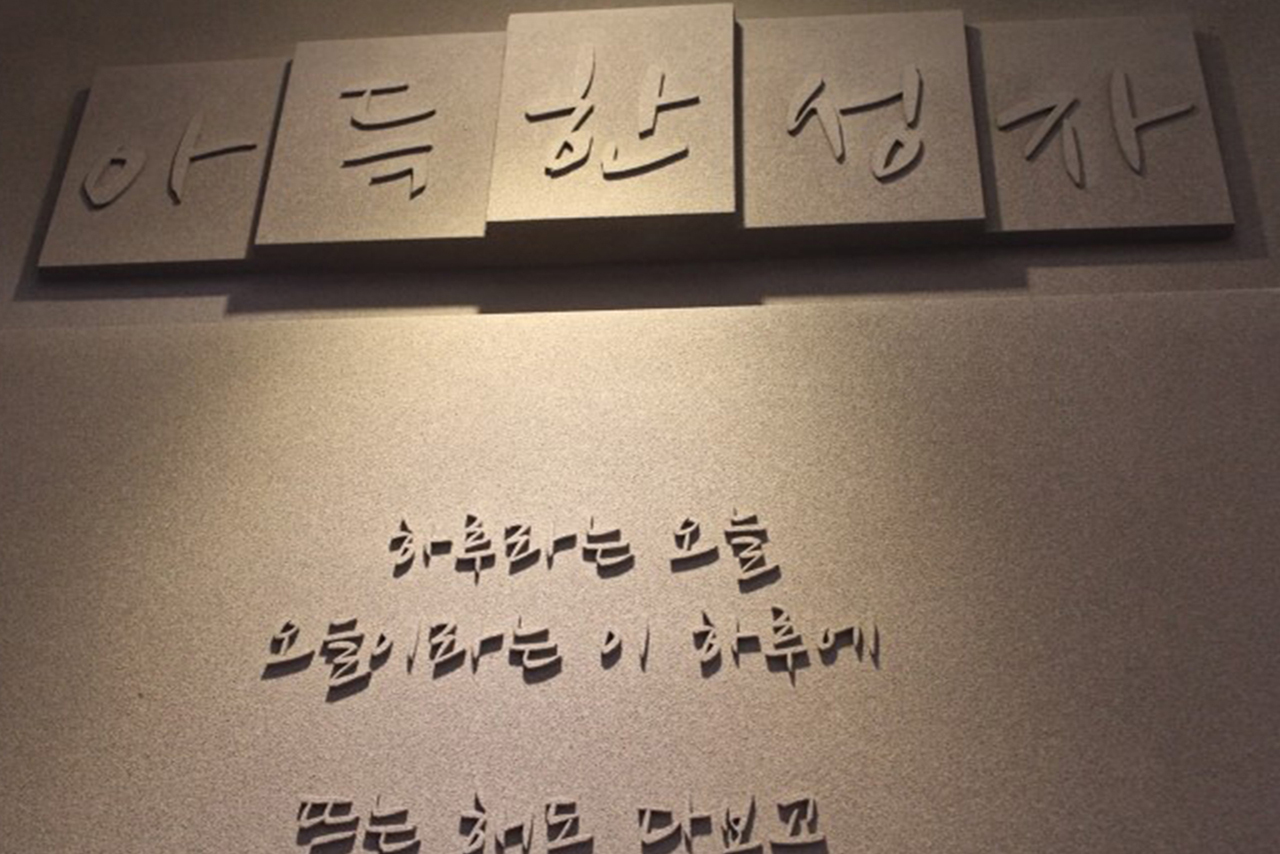 아득한 성자
하루라는 오늘
오늘이라는 이 하루에
뜨는 해도 다보고